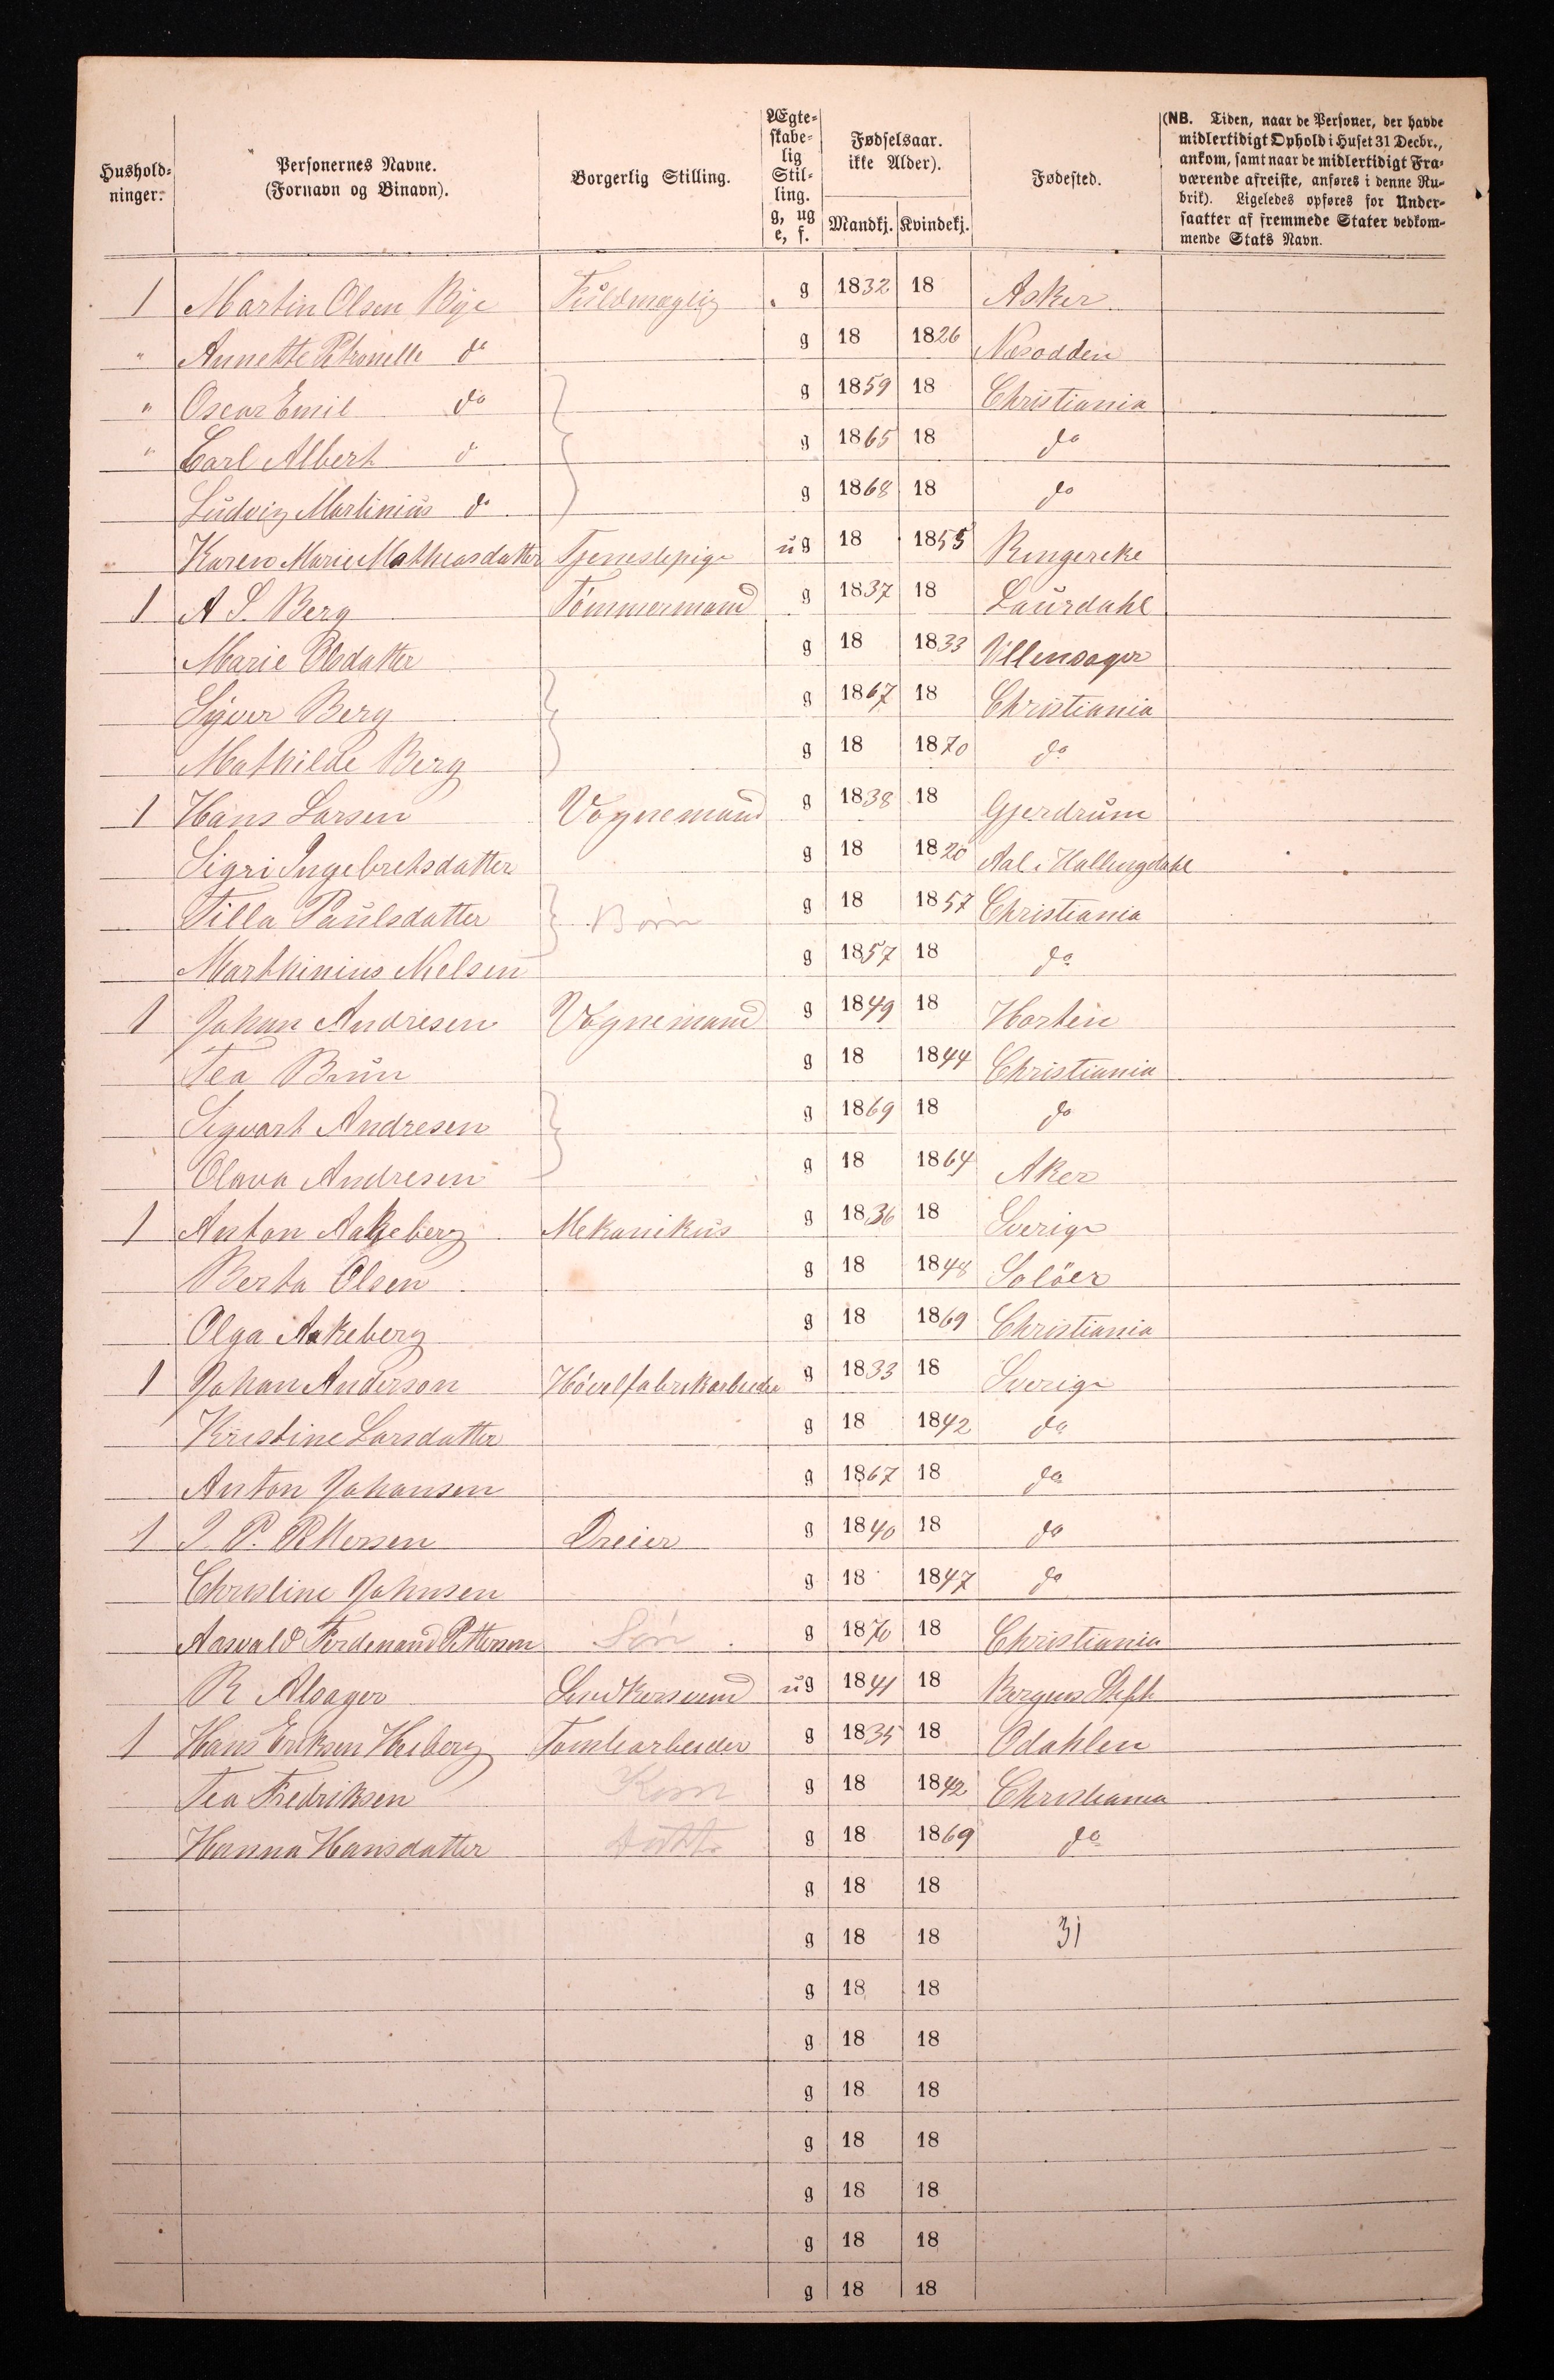 Hushold-
ninger.
Personernes Navne.
(Fornavn og Binavn).
Borgerlig Stilling.
Ægte-
skabe-
lig
Stil-
ling.
g, ug
e, f.
Fødselsaar.
ikke Alder).
Mandkj. Kvindekj.
Fødested.
(NB. Tiden, naar de Personer, der havde
midlertidigt Ophold i Huset 31 Decbr.,
ankom, samt naar de midlertidigt Fra-
værende afreiste, anføres i denne Ru-
brik). Ligeledes opføres for Under-
saatter af fremmede Stater vedkom-
mende Stats Navn.
1 Martin Olsen Bye Fuldmægtig g 1832 18 Asker
" Annette Petronelle do g 18 1826 Næsodden
" Oscar Emil do g 1859 18 Christiania
" Carl Albert do g 1865 18 do
Ludvig Martinius do g 1868 18 do
Karen Marie Mathiasdatter Tjenestepige ug 18 1855 Ringereke
1 A S. Berg Tömmermand g 1837 18 Laurdahl
Marie Olsdatter g 18 1833 Ullensager
Syver Berg g 1867 18 Christiania
Mathilde Berg g 18 1870 do
1 Hans Larsen Vognemand g 1838 18 Gjerdrum
Sigri Ingebretsdatter g 18 1820 Aal i Hallingdahl
Tilla Paulsdatter Börn g 18 1857 Christiania
Marthinius Nielsen g 1857 18 do
1 Johan Andresen Vognemand g 1849 18 Horten
Tea Brun g 18 1844 Christiania
Sigvart Andresen g 1869 18 do
Olava Andresen g 18 1864 Aker
1 Anton Aakeberg Mekanikus g 1836 18 Sverige
Berta Olsen g 18 1848 Solöer
Olga Aakeberg g 18 1869 Christiania
1 Johan Anderson Hövelfabrikarbeider g 1833 18 Sverige
Kristine Larsdatter g 18 1842 do
Anton Johansen g 1867 18 do
1 J. P. Pettersen Dreier g 1840 18 do
Christine Johnsen g 18 1847 do
Aasvald Ferdenand Pettersen Sön g 1870 18 Christiania
R Alsager Snedkersvend ug 1841 18 Bergens Stift
1 Hans Eriksen Heiberg Tomtearbeider g 1835 18 Odahlen
Tea Fredriksen Kone g 18 1842 Christiania
Hanna Hansdatter Datter g 18 1869 do
g 18 18
g 18 18 31
g 18 18
g 18 18
g 18 18
g 18 18
g 18 18
g 18 18
g 18 18